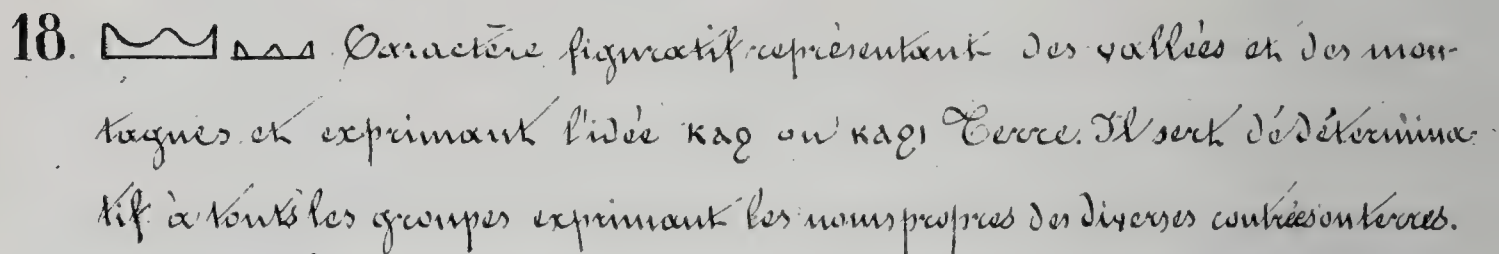 18. 𓈉 Caractère figuratif représentant des vallées et des mon-
tagnes et exprimant l'idée ⲕⲁϩ ou ⲕⲁϩⲓ Terre. Il sert dé détermina-
tif à touts les groupes exprimant les noms propres des diverses contrées ou terres.